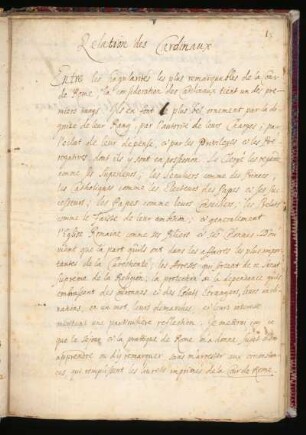 15
Relation des Cardinaux
Entre les singularités les plus remarquables de la Cour
de Rome, la consideration des Cardinaux tient un des pre
miers rangs. Ils en font le plus bel ornement par la di
gnité de leur Rang, par l'autorité de leurs Charges, par
l'éclat de leur dépense, et par les Privileges et les Pré
rogatives dont ils y sont en possession. Le Clergé les regarde
comme ses Superieurs, les Seculiers comme des Princes,
les Catholiques comme les Electeurs des Papes et ses
successeurs; les Papes comme leurs Conseillers; les Prelats
comme le Faiste de leur ambition; et generalement
l'Eglise Romaine comme ses Pliers et ses
que la part qu'ils ont dans les affaires les plus impor
tantes de la Chretienté; les Arrests qui
Supreme de la Religion; la protection ou la dependance qu'ils
des Couronnes, et des Estats Etrangers, leurs incli
nations, en un mot leurs demarches, et leurs interests
meritent une particuliere reflection. Je mettray icy ce
que le sejour et la pratique de Rome m'a donné
apprendre ou de remarquer sans m'arrester aux
qui remplissent les livrets imprimés de la Cour de Rome.